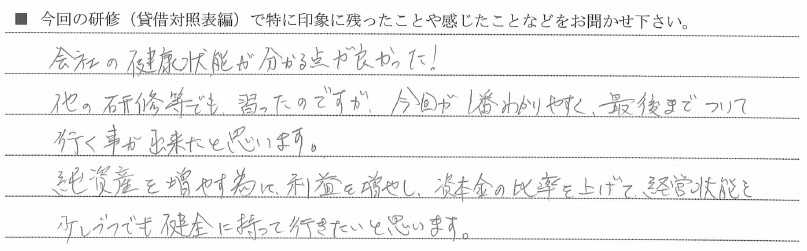 ■ 今回の研修（貸借対照表編）で特に印象に残ったことや感じたことなどをお聞かせ下さい。
会社の健康状態が分かる点が良かった！
他の研修等でも習ったのですが、今回が1番わかりやすく、最後までついて
行く事が出来たと思います。
純資産を増やす為に、利益を増やし、資本金の比率を上げて、経営状態を
少しづつでも健全に持って行きたいと思います。